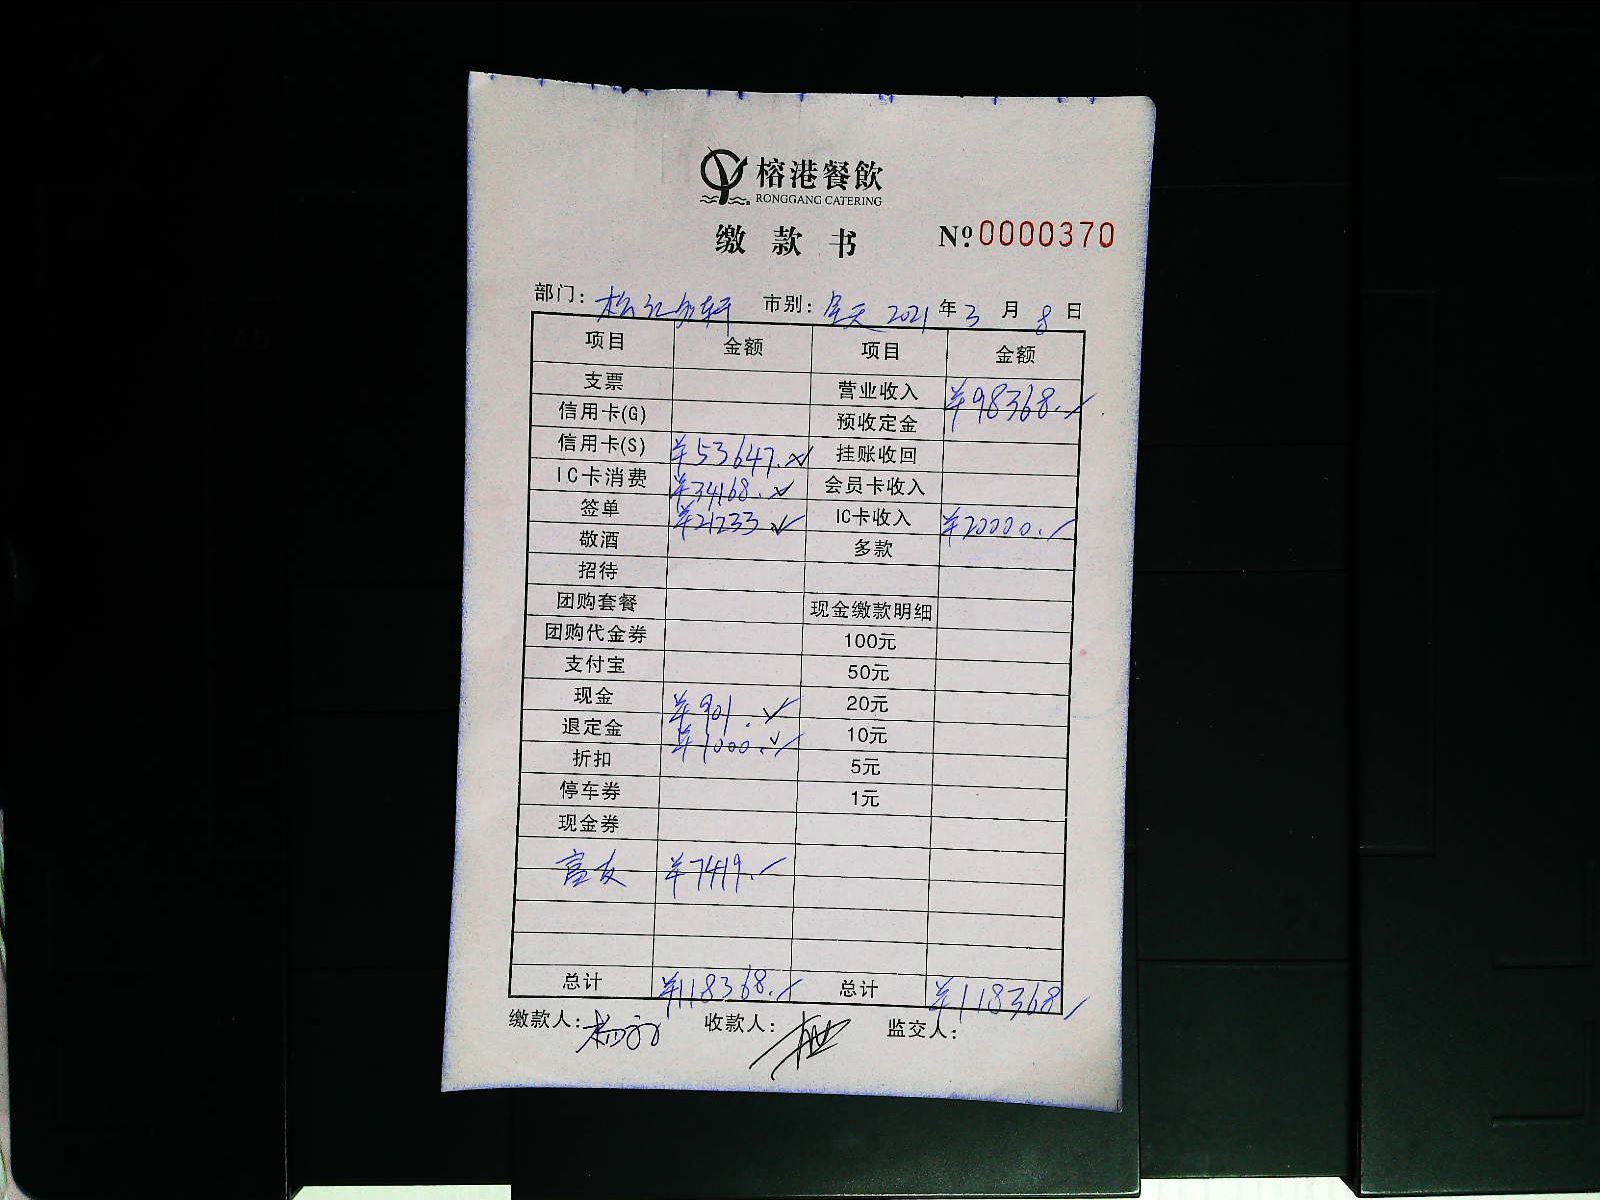 榕港餐飲
RONGGANG CATERING
缴款书 №0000370
部门: 市别: 全天 2021年3月8日
项目 金额 项目 金额
支票 营业收入 ¥98368.
信用卡(G) 预收定金
信用卡(S) ¥53647. 挂账收回
IC卡消费 ¥34168. 会员卡收入
签单 ¥21233 IC卡收入 ¥20000.
敬酒 多款
招待
团购套餐 现金缴款明细
团购代金券 100元
支付宝 50元
现金 ¥901. 20元
退定金 ¥1000. 10元
折扣 5元
停车券 1元
现金券
富友 ¥7419.
总计 ¥118368. 总计 ¥118368
缴款人: 收款人: 监交人: